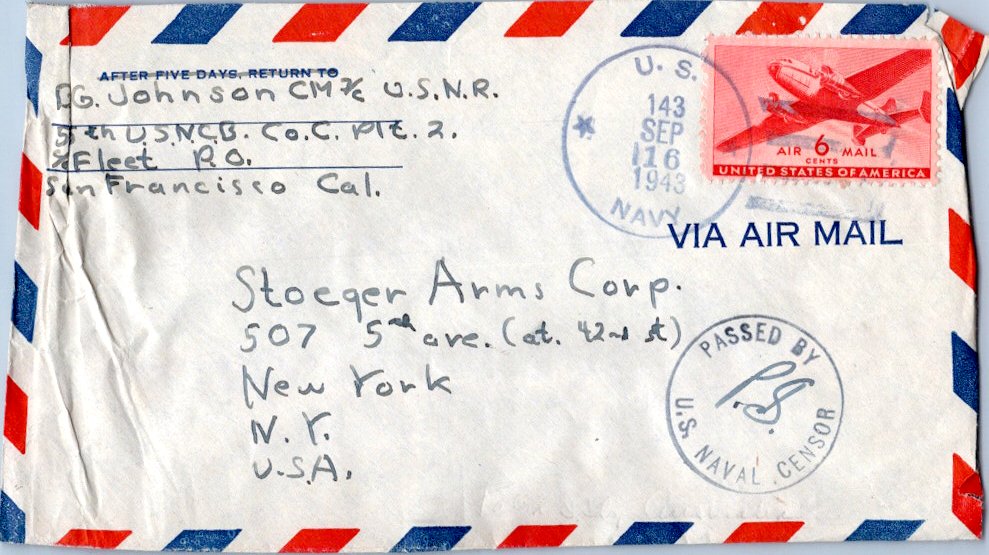 AFTER FIVE DAYS, RETURN TO
D.G. Johnson CM 3/c U.S.N.R.
5th U.S.N.C.B. Co.C. Plt. 2.
℅ Fleet P.O.
San Francisco Cal.
U. S.
143
SEP
16
1943
NAVY
AIR 6 MAIL
CENTS
UNITED STATES OF AMERICA
VIA AIR MAIL
Stoeger Arms Corp.
507 5th ave. (at. 42nd st)
New York
N.Y.
U.S.A.
PASSED BY
P.S.
U.S. NAVAL CENSOR